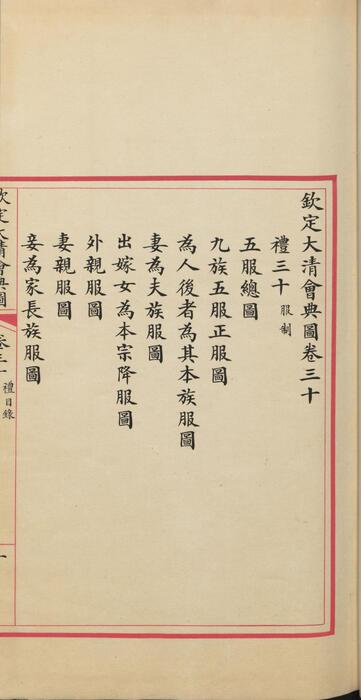 欽定大清會典圖卷三十
禮三十 服制
五服總圖
九族五服正服圖
為人後者為其本族服圖
妻為夫族服圖
出嫁女為本宗降服圖
外親服圖
妻親服圖
妾為家長族服圖
欽定大清會典圖
卷三十 禮目錄
一